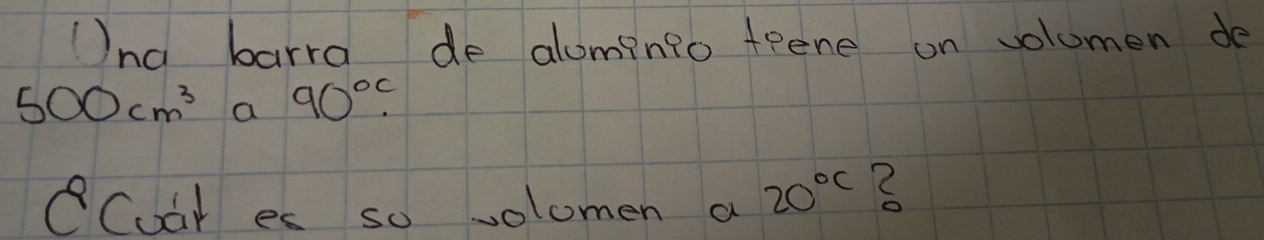 Una barra de aluminio tiene un volumen de
500cm³ a 90°C.
¿Cuál es su volumen a 20°C?